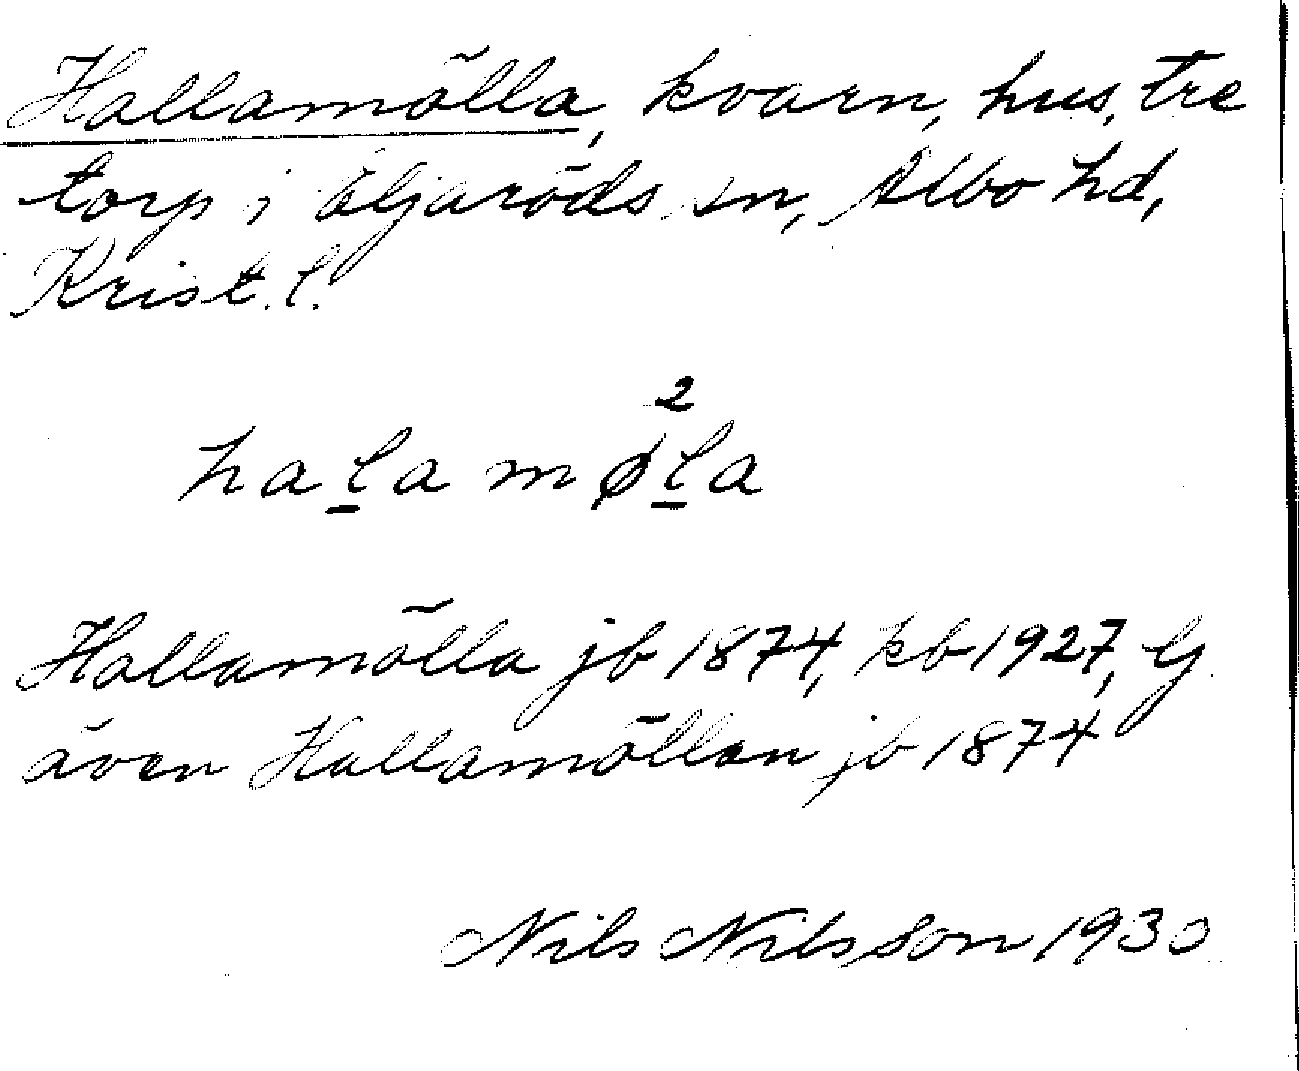 Hallamölla, kvarn, hus, tre
torp i Eljaröds sn, Albo hd,
Krist. l.
2
ha l̲a mø l̲a
Hallamölla jb 1874, kb 1927, G
även Hallamöllan jb 1874
Nils Nilsson 1930